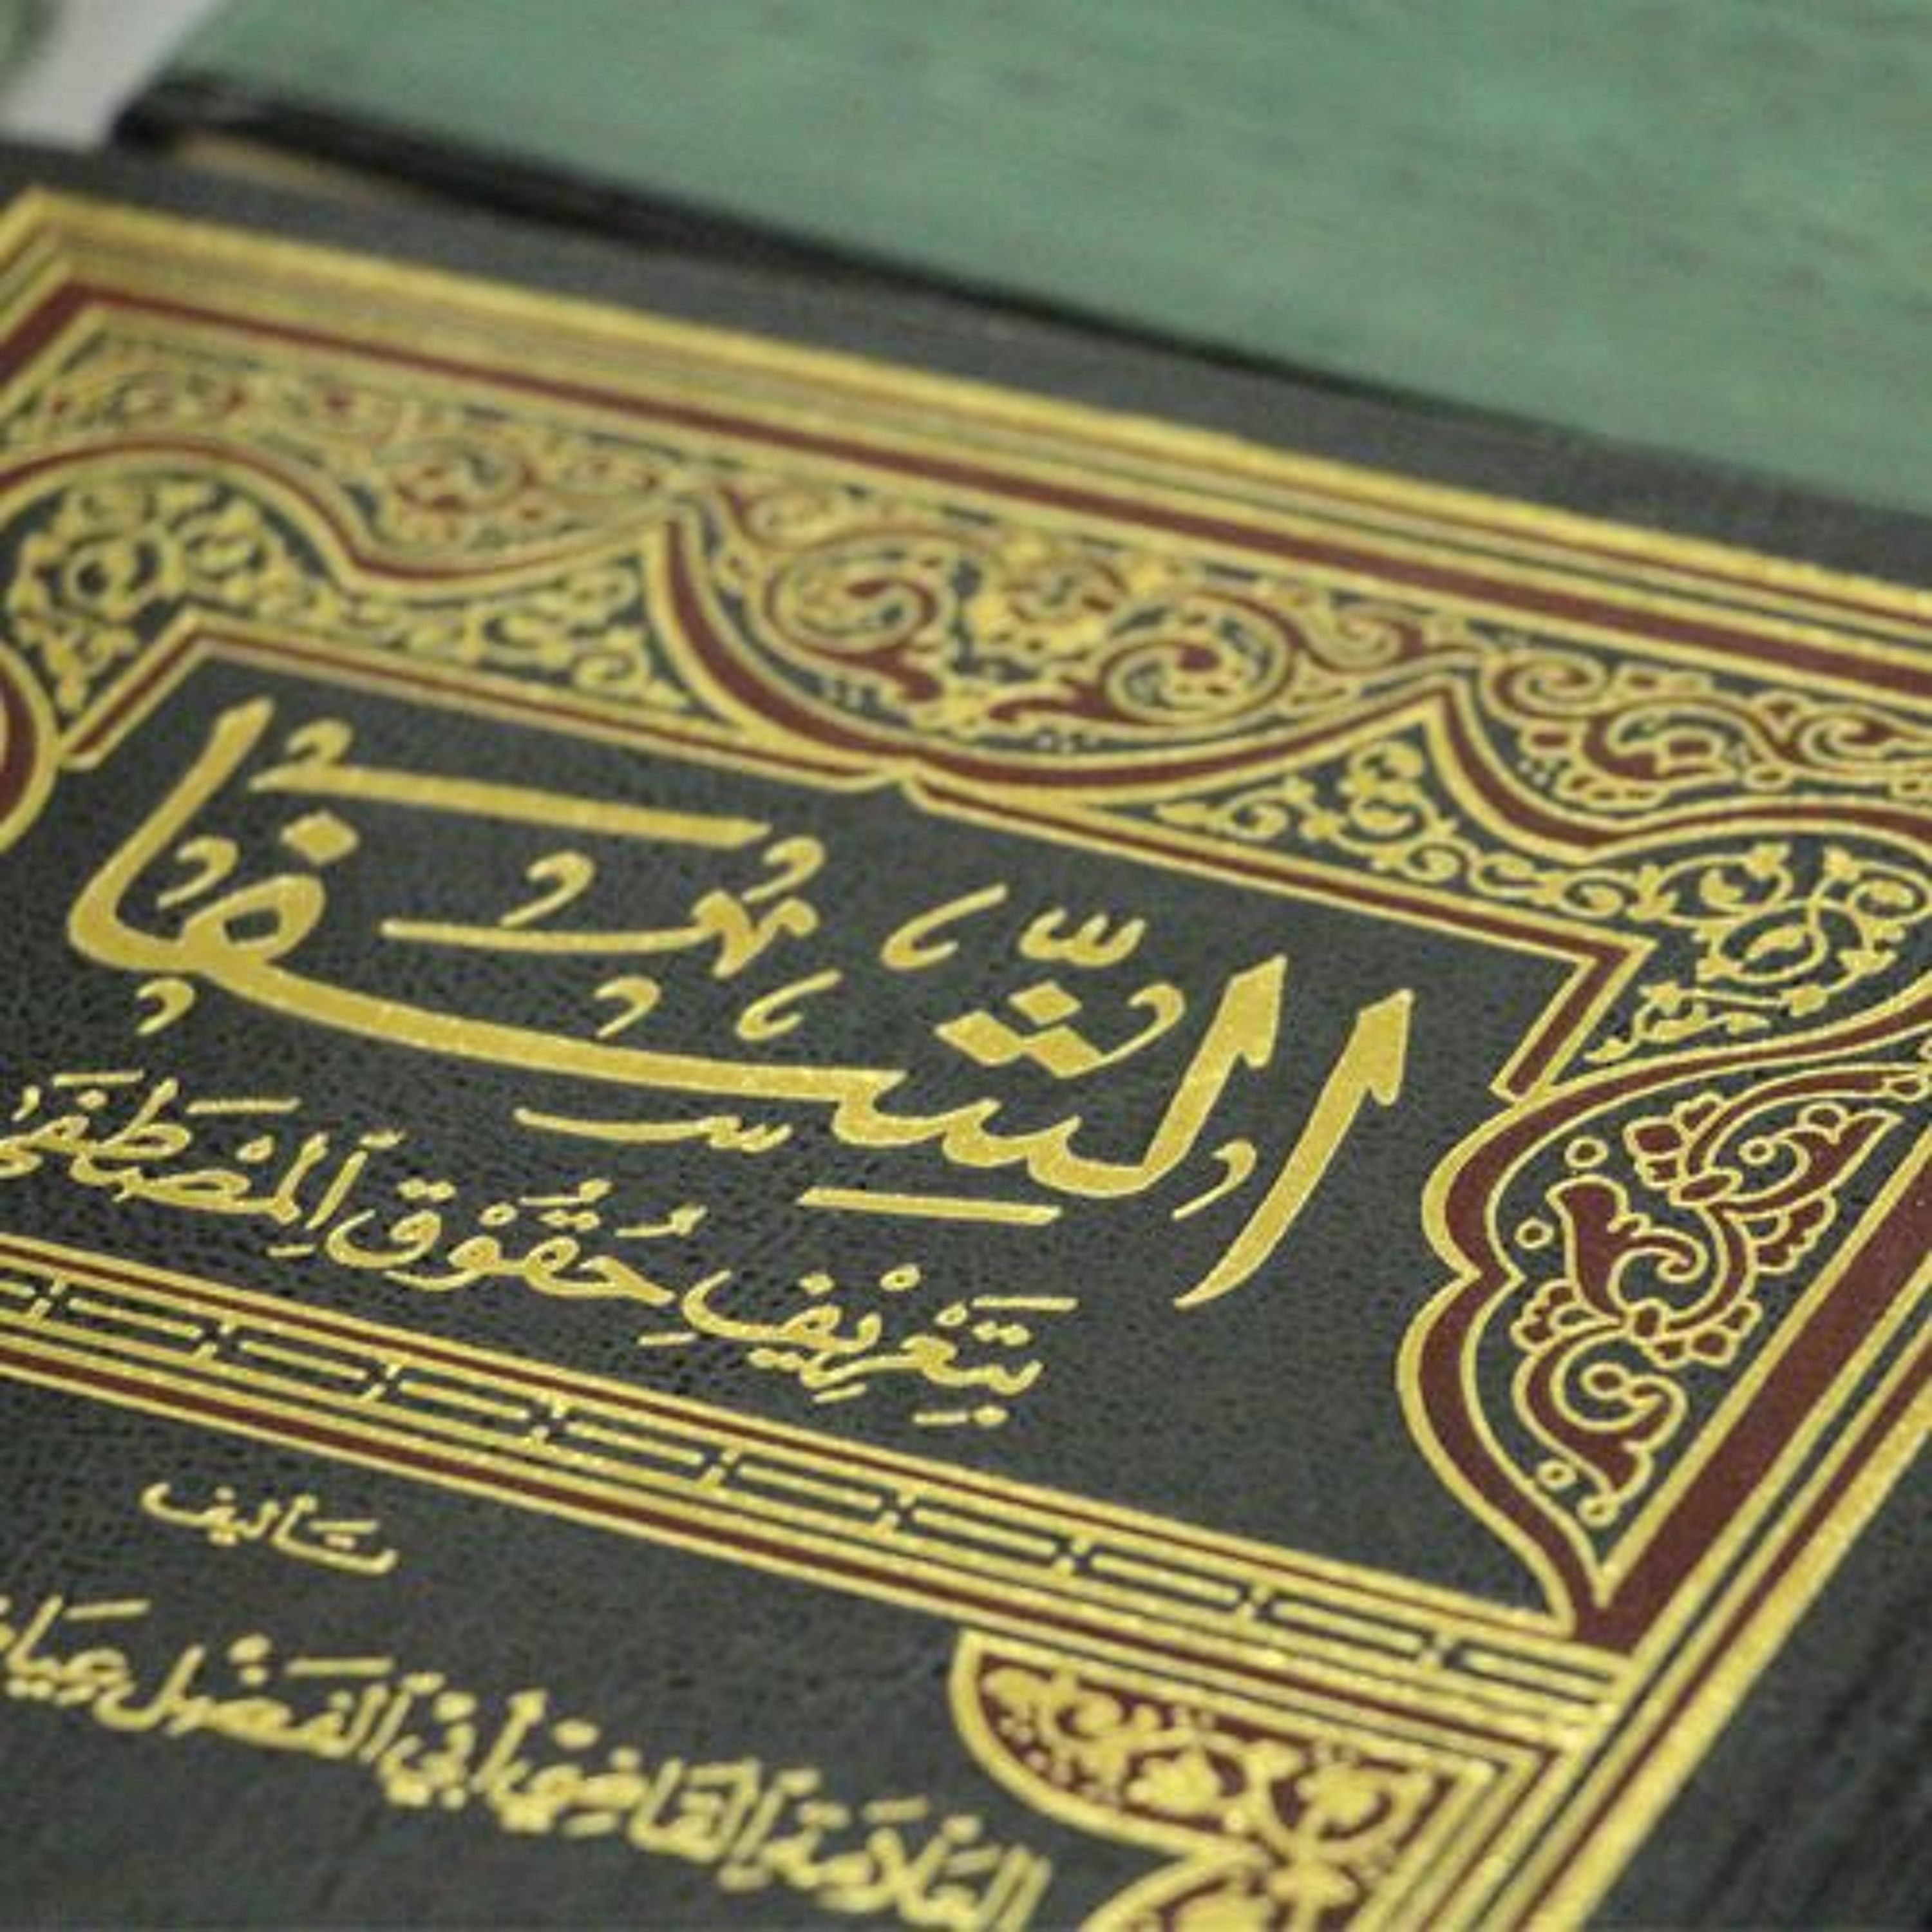 الشِّفَا
بِتَعْرِيْفِ حُقُوْقِ الْمُصْطَفَى
تَأليف
العَلَّامَة القَاضِي أَبِي الفَضْل عِيَاض